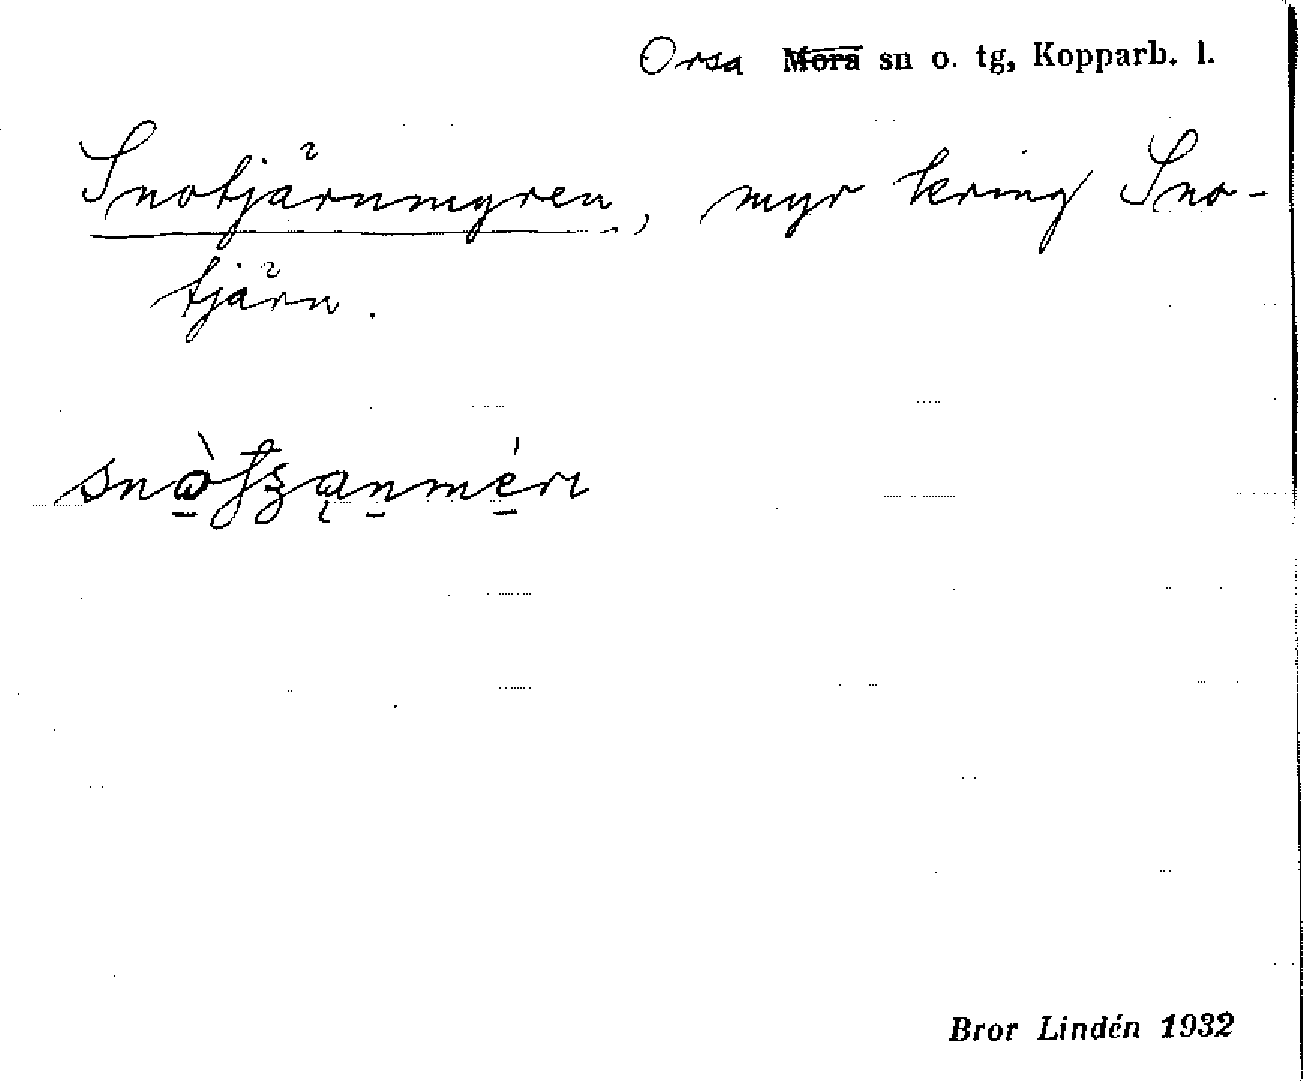 Orsa Mora sn o. tg, Kopparb. l.
Snotjärnmyren, myr kring Sno-
tjärn.
Bror Lindén 1932